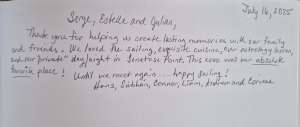 July 16, 2025
Serge, Estelle and Julian,
Thank you for helping us create lasting memories with our family
and friends. We loved the sailing, exquisite cuisine, our astrology lesson,
and our "private" day/night in Genetose Point. This cove was our absolute
favorite place! Until we meet again... happy sailing!
Hans, Siobhan, Connor, Liam, Andrew and Corinne